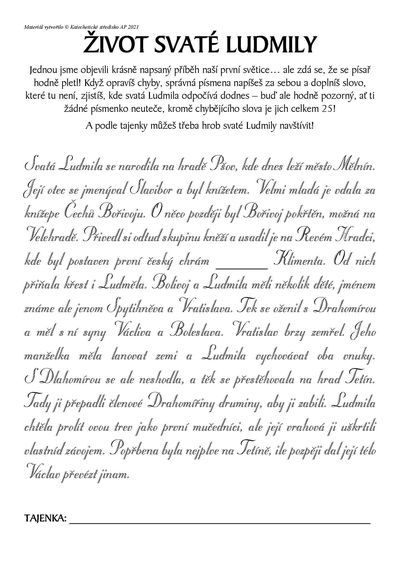 Materiál vytvořilo © Katechetické středisko AP 2021
ŽIVOT SVATÉ LUDMILY
Jednou jsme objevili krásně napsaný příběh naší první světice… ale zdá se, že se písař
hodně pletl! Když opravíš chyby, správná písmena napíšeš za sebou a doplníš slovo,
které tu není, zjistíš, kde svatá Ludmila odpočívá dodnes – buď ale hodně pozorný, ať ti
žádné písmenko neuteče, kromě chybějícího slova je jich celkem 25!
A podle tajenky můžeš třeba hrob svaté Ludmily navštívit!
Svatá Ludmila se narodila na hradě Pšov, kde dnes leží město Mělnín.
Její otec se jmenýval Slavibor a byl knížetem. Velmi mladá je vdala za
knížepe Čechů Bořivoju. O něco pozdějí byl Bořivoj pokřtěn, možná na
Velehradě. Přivedl si odtud skupinu kněží a usadil je na Revém Hradci,
kde byl postaven první český chrám ________ Klimenta. Od nich
přišala křest i Ludměla. Bolivoj a Ludmila měli několik děté, jménem
známe ale jenom Spytihněva a Vratislava. Tek se oženil s Drahomírou
a měl s ní syny Václiva a Boleslava. Vratislav brzy zemřel. Jeho
manželka měla lanovat zemi a Ludmila vychovávat oba vnuky.
S Dlahomírou se ale neshodla, a těk se přestěhovala na hrad Tetín.
Tady ji přepadli členové Drahomířiny druminy, aby ji zabili. Ludmila
chtěla prolít ovou trev jako první mučedníci, ale její vrahová ji uškrtili
vlastníd závojem. Popřbena byla nejplve na Tetíně, ile pozpěji dal její tělo
Václav převézt jinam.
TAJENKA: